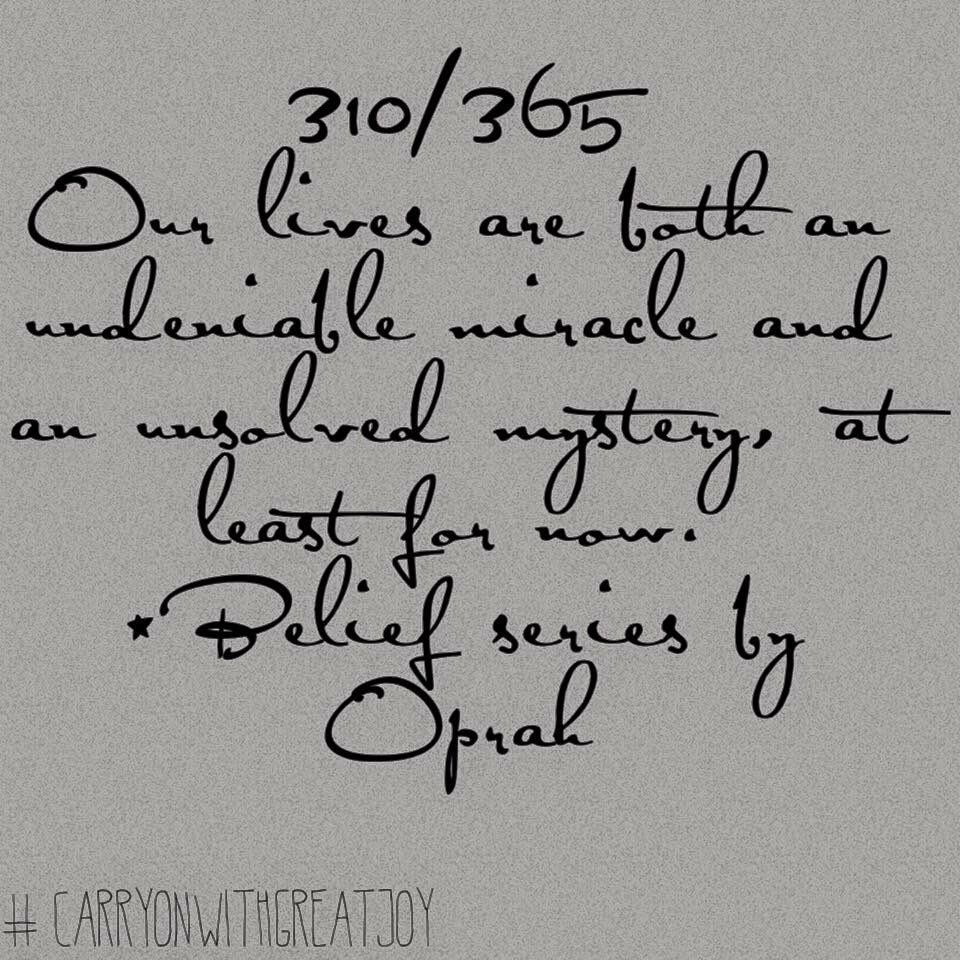 310/365
Our lives are both an
undeniable miracle and
an unsolved mystery, at
least for now.
★ Belief series by
Oprah
# CARRYONWITHGREATJOY